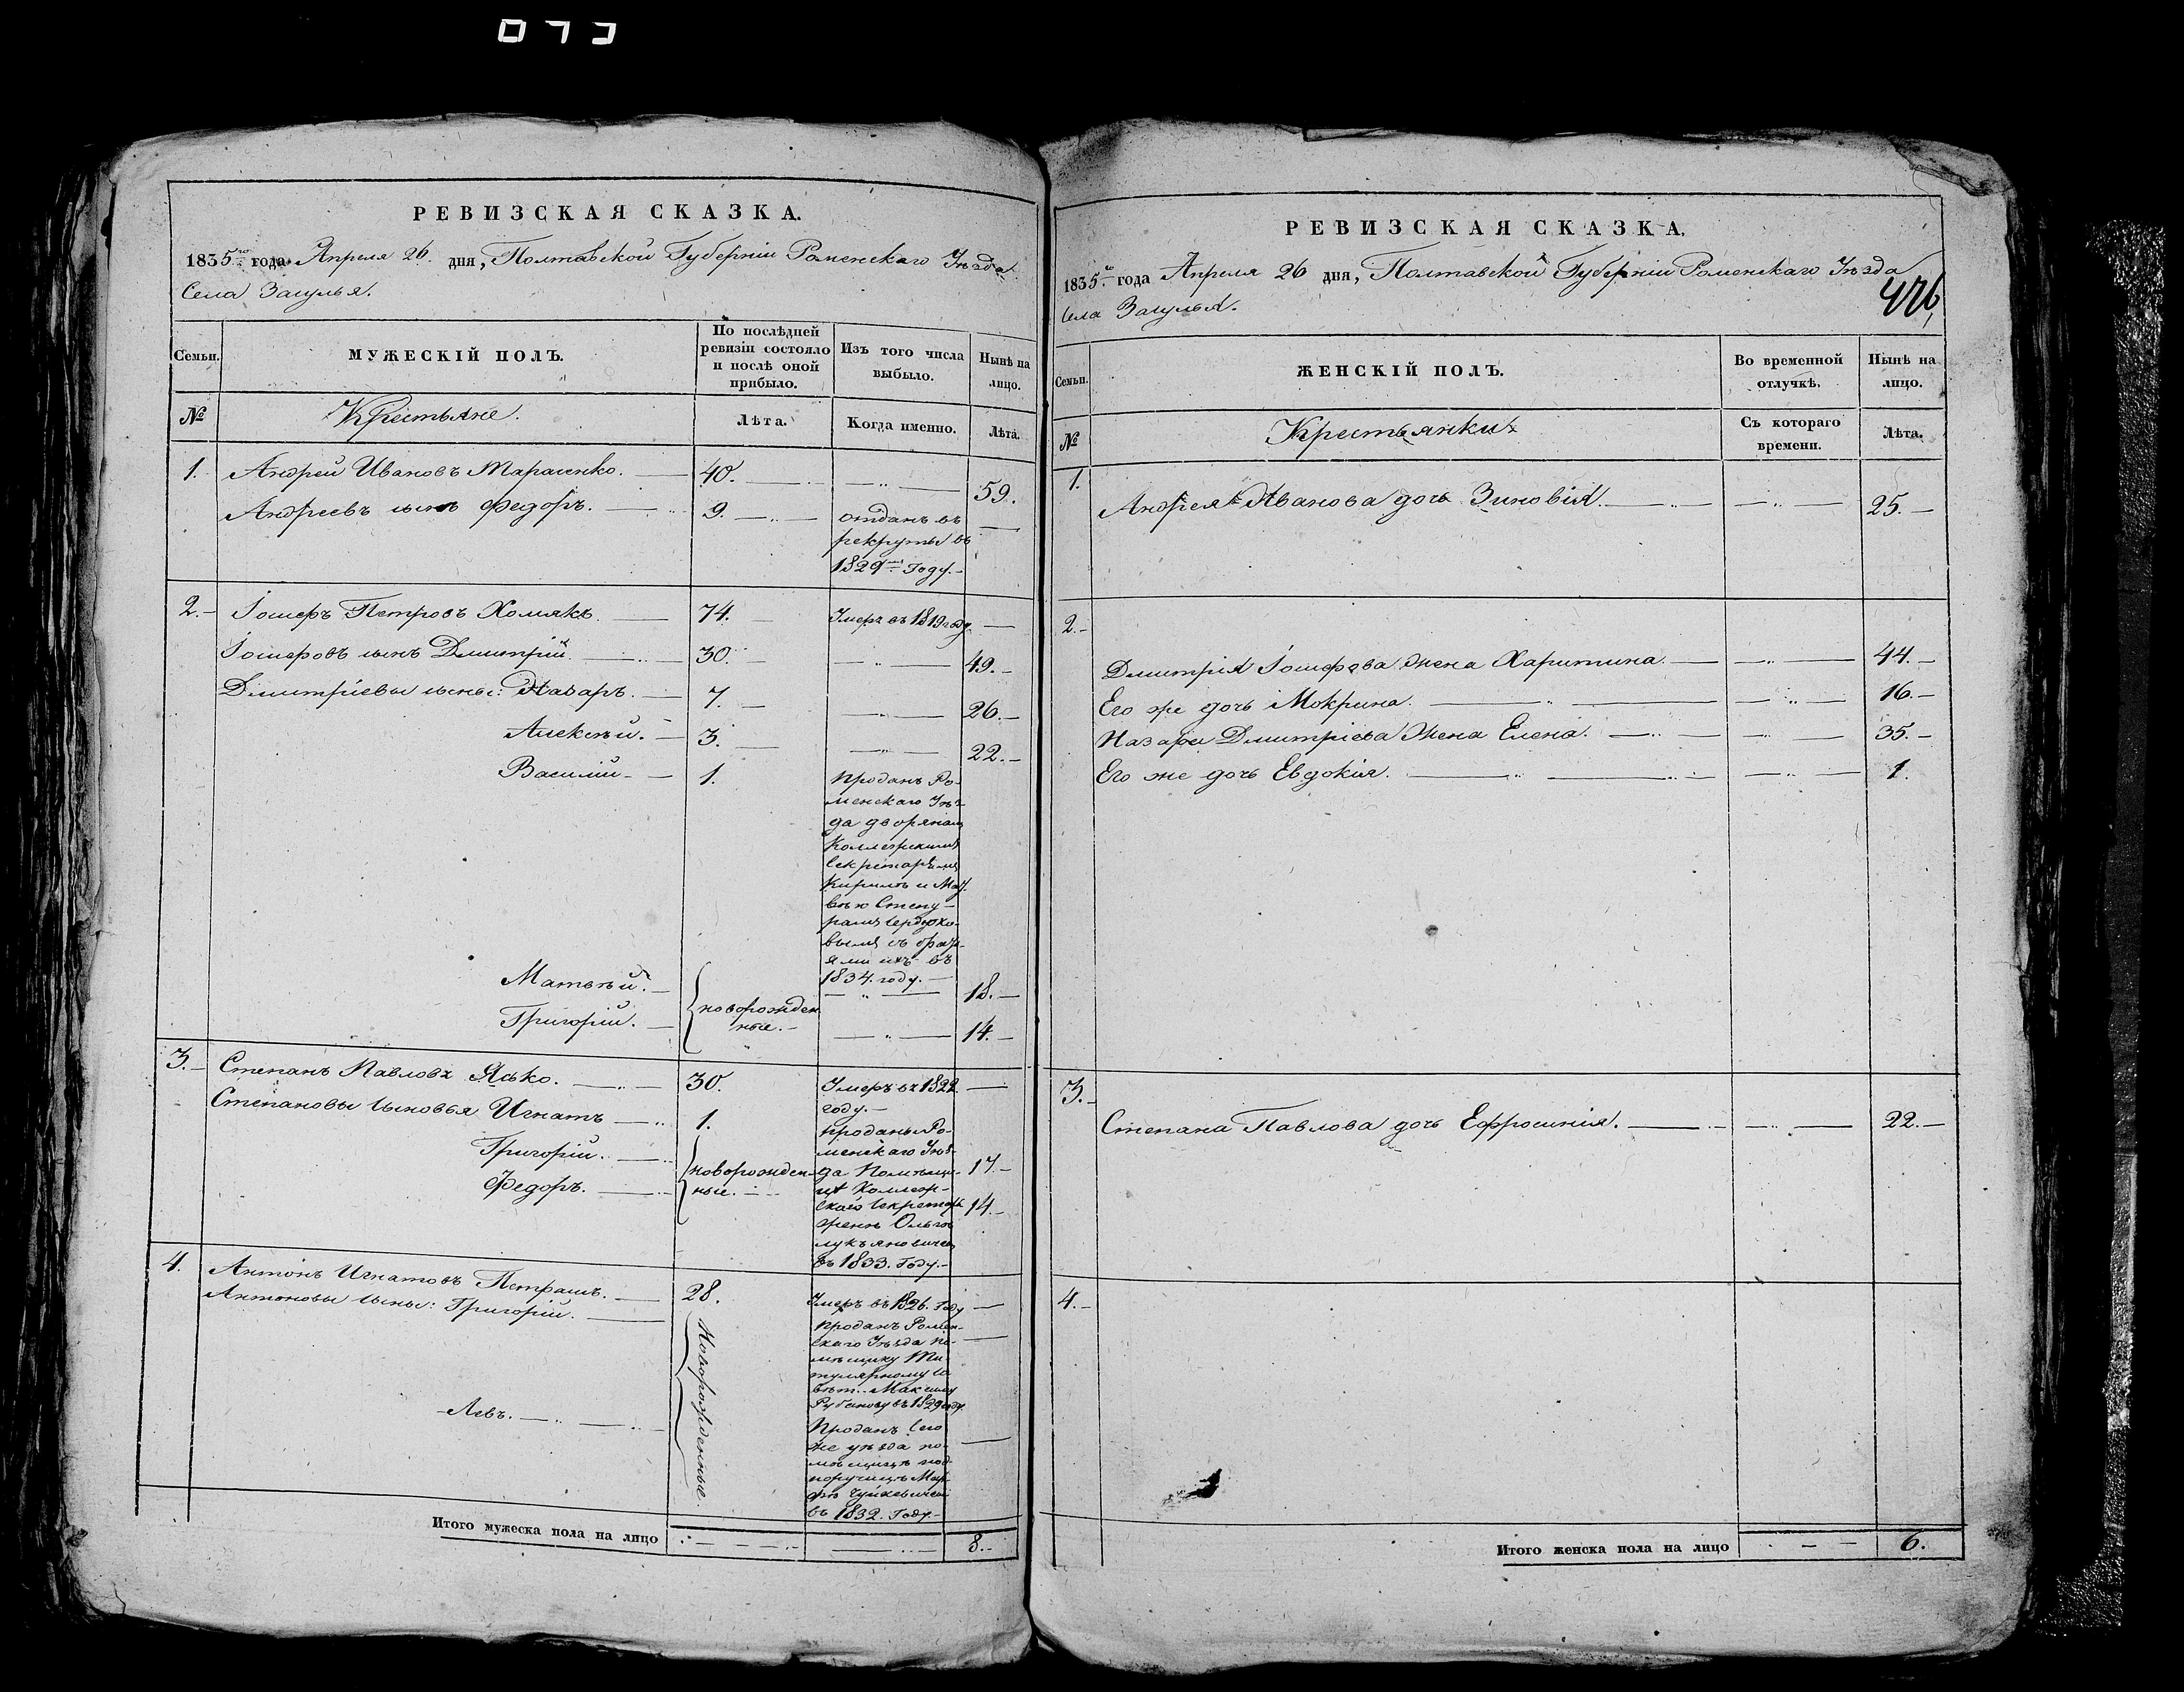 РЕВИЗСКАЯ СКАЗКА.
1835го года Апреля 26 дня, Полтавской Губерніи Роменскаго Уѣзда
Села Загулья.
Семьи.
МУЖЕСКІЙ ПОЛЪ.
По послѣдней ревизіи состояло и послѣ оной прибыло.
Изъ того числа выбыло.
Нынѣ на лицо.
№
Крестьяне.
Лѣта.
Когда именно.
Лѣта.
1. Андрей Ивановъ 40. 59.
Андреевъ сынъ Федоръ. 9. отданъ въ
рекруты въ
1829мъ году.
2. Іосифъ Петровъ Хомякъ. 74. Умеръ въ 1819 году
Іосифовъ сынъ Дмитрій. 30. 49.
Дмитріевы сыны: Назаръ. 7. 26.
Алексѣй. 3. 22.
Василій 1. Проданъ Ро-
менскаго Уѣз-
да дворянам
Коллежским
Секретарями
Кирилѣ и Мат
вѣю
въ
1834. году.
Матвѣй. 18.
Григорій. новорожден
ные. 14.
3. Степанъ Павловъ Ясько. 30. Умеръ въ 1822
году.
Степановы сыновья Игнатъ 1. проданы Ро-
менскаго Уѣз-
Григорій. новорожден- да Помѣщи- 17.
Федоръ. ные. цѣ Коллеж-
скаго Секретаря 14.
женѣ Ольгѣ
въ 1833. Году.
4. Антонъ Игнатовъ Петрашъ. 28. Умеръ въ 1826. Году
Антоновы сыны: Григорій. Новорожденные. проданъ Ромен-
скаго Уѣзда по-
мѣщику Ти
тулярному Со
вѣт. Максиму
въ 1829 году.
Левъ. Проданъ Сего
же уѣзда по-
мѣщицѣ под
поручицѣ
въ 1832. Году.
Итого мужеска пола на лицо 8.
РЕВИЗСКАЯ СКАЗКА.
1835го года Апреля 26 дня, Полтавской Губерніи Роменскаго Уѣзда
Села Загулья.
Семьи.
ЖЕНСКІЙ ПОЛЪ.
Во временной отлучкѣ.
Нынѣ на лицо.
№
Крестьянки
Съ котораго времени.
Лѣта.
1. Андрея Иванова дочь Зиновія. 25.
2.
Дмитрія Іосифова жена Харитина. 44.
Его же дочь Мокрина. 16.
Назара Дмитріева жена Елена. 35.
Его же дочь Евдокія. 1.
3.
Степана Павлова дочь Ефросинія. 22.
4.
Итого женска пола на лицо 6.